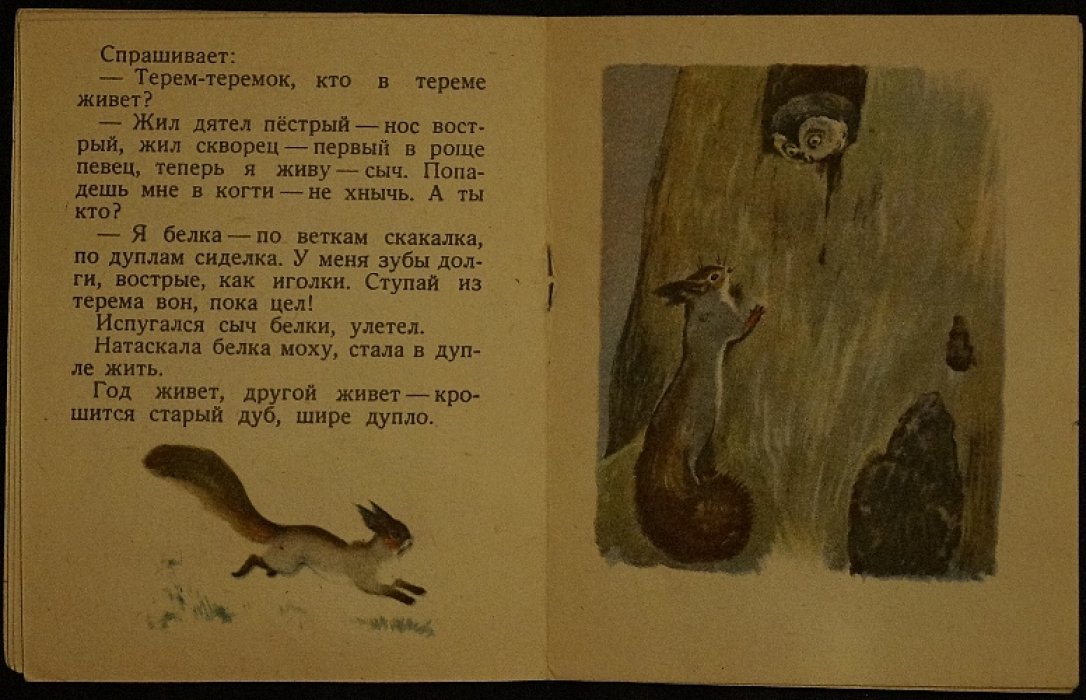 Спрашивает:
— Терем-теремок, кто в тереме
живет?
— Жил дятел пёстрый — нос вост-
рый, жил скворец — первый в роще
певец, теперь я живу — сыч. Попа-
дешь мне в когти — не хнычь. А ты
кто?
— Я белка — по веткам скакалка,
по дуплам сиделка. У меня зубы дол-
ги, вострые, как иголки. Ступай из
терема вон, пока цел!
Испугался сыч белки, улетел.
Натаскала белка моху, стала в дуп-
ле жить.
Год живет, другой живет — кро-
шится старый дуб, шире дупло.